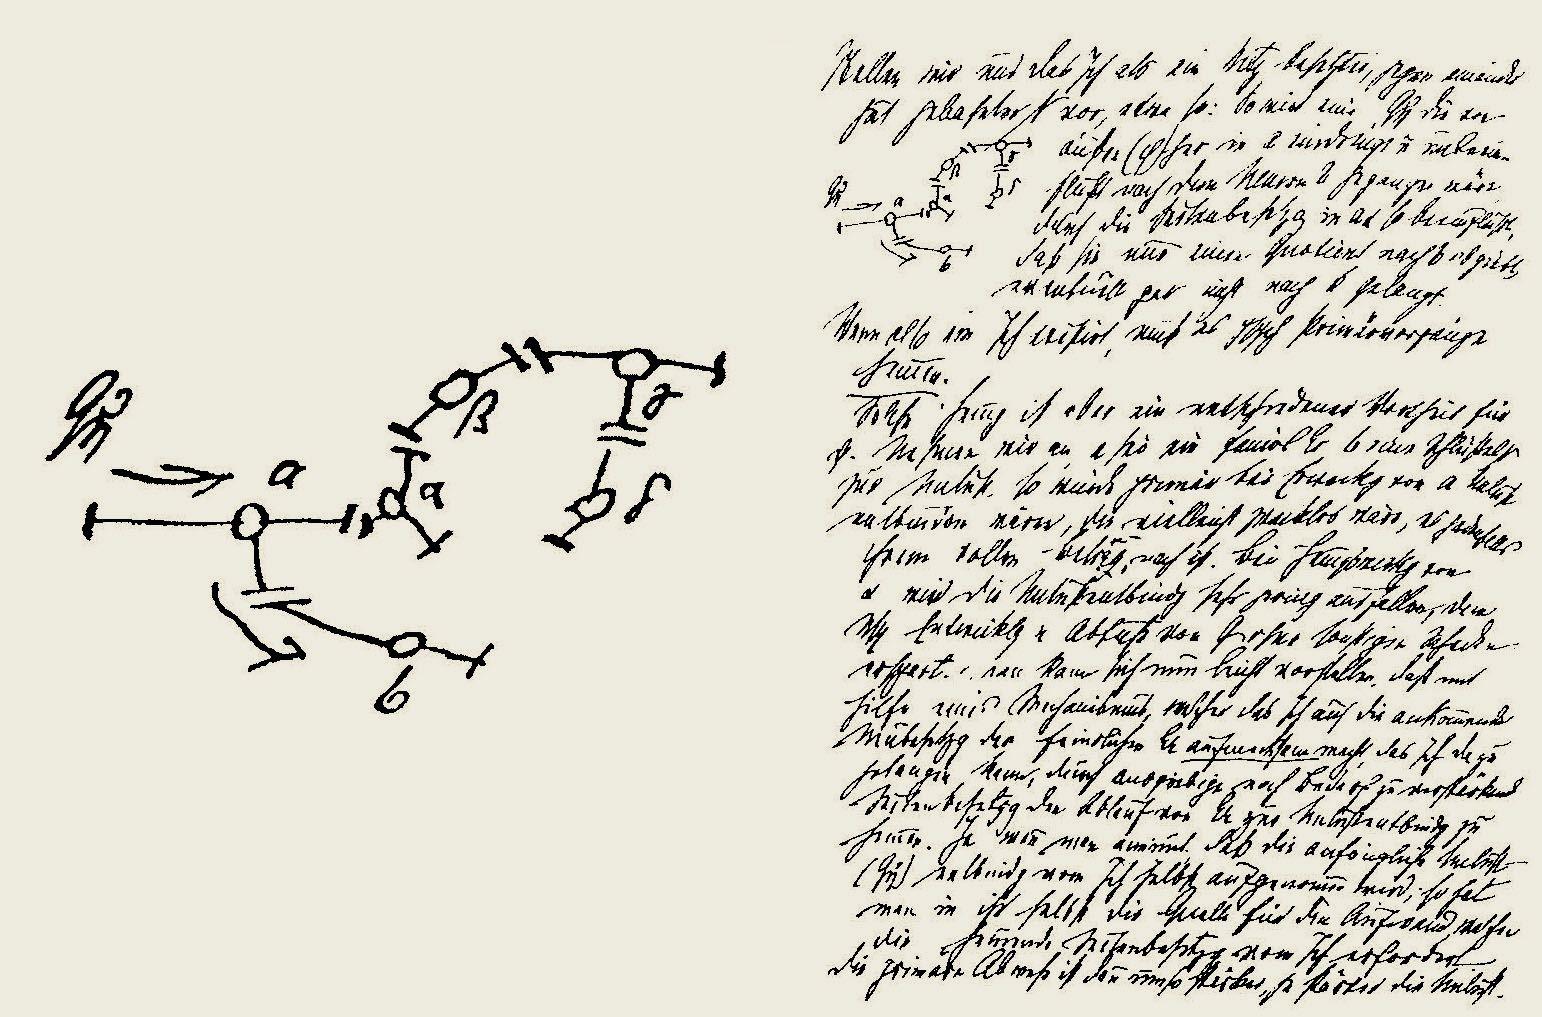 Qή
a
α
β
γ
δ
b
Stellen wir uns das Ich als ein Netz besetzter, gegen einander
gut gebahnter N vor, etwa so: So wird eine Qή die von
außen (φ) her in a eindringt u unbeein-
flußt nach dem Neuron b gegangen wäre
durch die Seitenbesetzg in aα so beeinflußt,
daß sie nur einen Quotient nach b abgiebt,
eventuell gar nicht nach b gelangt.
Qή
a
α
β
γ
δ
b
Wenn also ein Ich existirt, muß es psych Primärvorgänge
hemen.
Solche Hemg ist aber ein entschiedener Vortheil für
ψ. Nehmen wir an a sei ein feindl Er b eine Schlüssel
zur Unlust, so würde primär bei Erweckg von a Unlust
entbunden werden, die vielleicht zwecklos wäre, es jedenfalls
ihrem vollen Betrag nach ist. Bei Hemgswirkg von
α wird die Unlustentbindg sehr gering ausfallen, dem
Nsy Entwicklg u Abfuhr von Q ohne sonstigen Schaden
erspart. Man kann sich nun leicht vorstellen, daß mit
Hilfe eines Mechanismus, welcher das Ich auf die ankomende
Neubesetzg des feindlichen Er aufmerksam macht, das Ich dazu
gelangen kann, durch ausgiebige nach Bedarf zu verstärkende
Seitenbesetzg den Ablauf vom Er zur Unlustentbindg zu
hemen. Ja wenn man animt, daß die anfängliche Unlust
(Qή) entbindg vom Ich selbst aufgenomen wird, so hat
man in ihr selbst die Quelle für den Aufwand, welchen
die hemende Seitenbesetzg vom Ich erfordert
Die primäre Abwehr ist dan umso stärker, je stärker die Unlust.